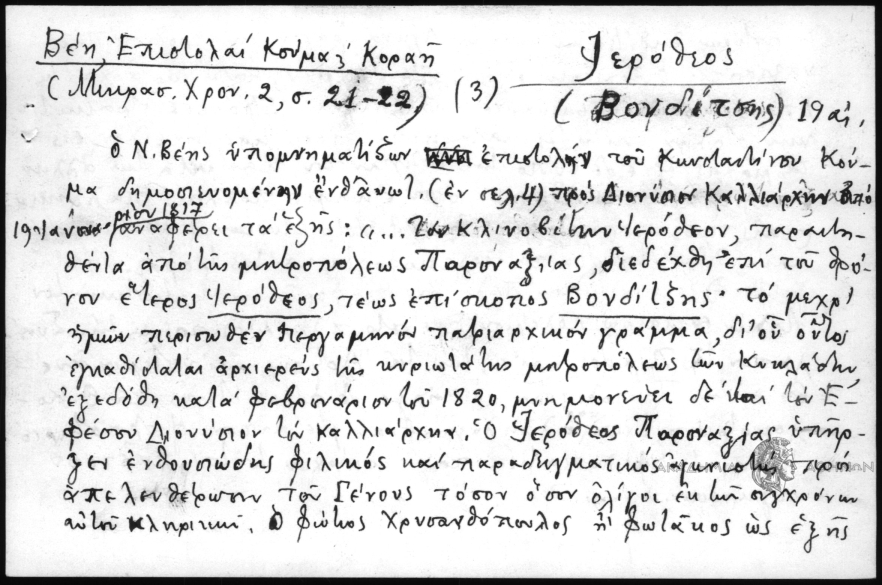 Βέη, Ἐπιστολαί Κούμα ἐ Κοραῆ
Ἱερόθεος
(Μικρασ. Χρον. 2, σ. 21-22) (3)
(Βονδίτσης) 19 αἰ.
ὁ Ν. Βέης ὑπομνηματίζων ἐπιστολήν τοῦ Κωνσταντίνου Κού-
μα δημοσιευομένην ἐνθάνωτ. (ἐν σελ. 4) πρός Διονύσιον Καλλιάρχην ἀπό
19 Ἰανουα-ρίου 1817 ἀναφέρει τά ἑξῆς: "... Τόν Κλινοβίτην Ἱερόθεον, παραιτη-
θέντα ἀπό τῆς μητροπόλεως Παροναξίας, διεδέχθη ἐπί τοῦ θρό-
νου ἕτερος Ἱερόθεος, τέως ἐπίσκοπος Βονδίτζης· τό μέχρι
ἡμῶν περισωθέν περγαμηνόν πατριαρχικόν γράμμα, δι' οὗ οὗτος
ἐγκαθίσταται ἀρχιερεύς τῆς κυριωτάτης μητροπόλεως τῶν Κυκλάδων,
ἐξεδόθη κατά φεβρουάριον τοῦ 1820, μνημονεύει δέ καί τόν Ἐ-
φέσου Διονύσιον τόν Καλλιάρχην. Ὁ Ἱερόθεος Παροναξίας ὑπῆρ-
ξεν ἐνθουσιώδης φιλικός καί παραδειγματικός ἀγωνιστής πρός
ἀπελευθέρωσιν τοῦ Γένους τόσον ὅσον ὀλίγοι ἐκ τῶν συγχρόνων
αὐτοῦ κληρικοί. Ὁ φώτιος Χρυσανθόπουλος ἤ φωτᾶκος ὡς ἑξῆς